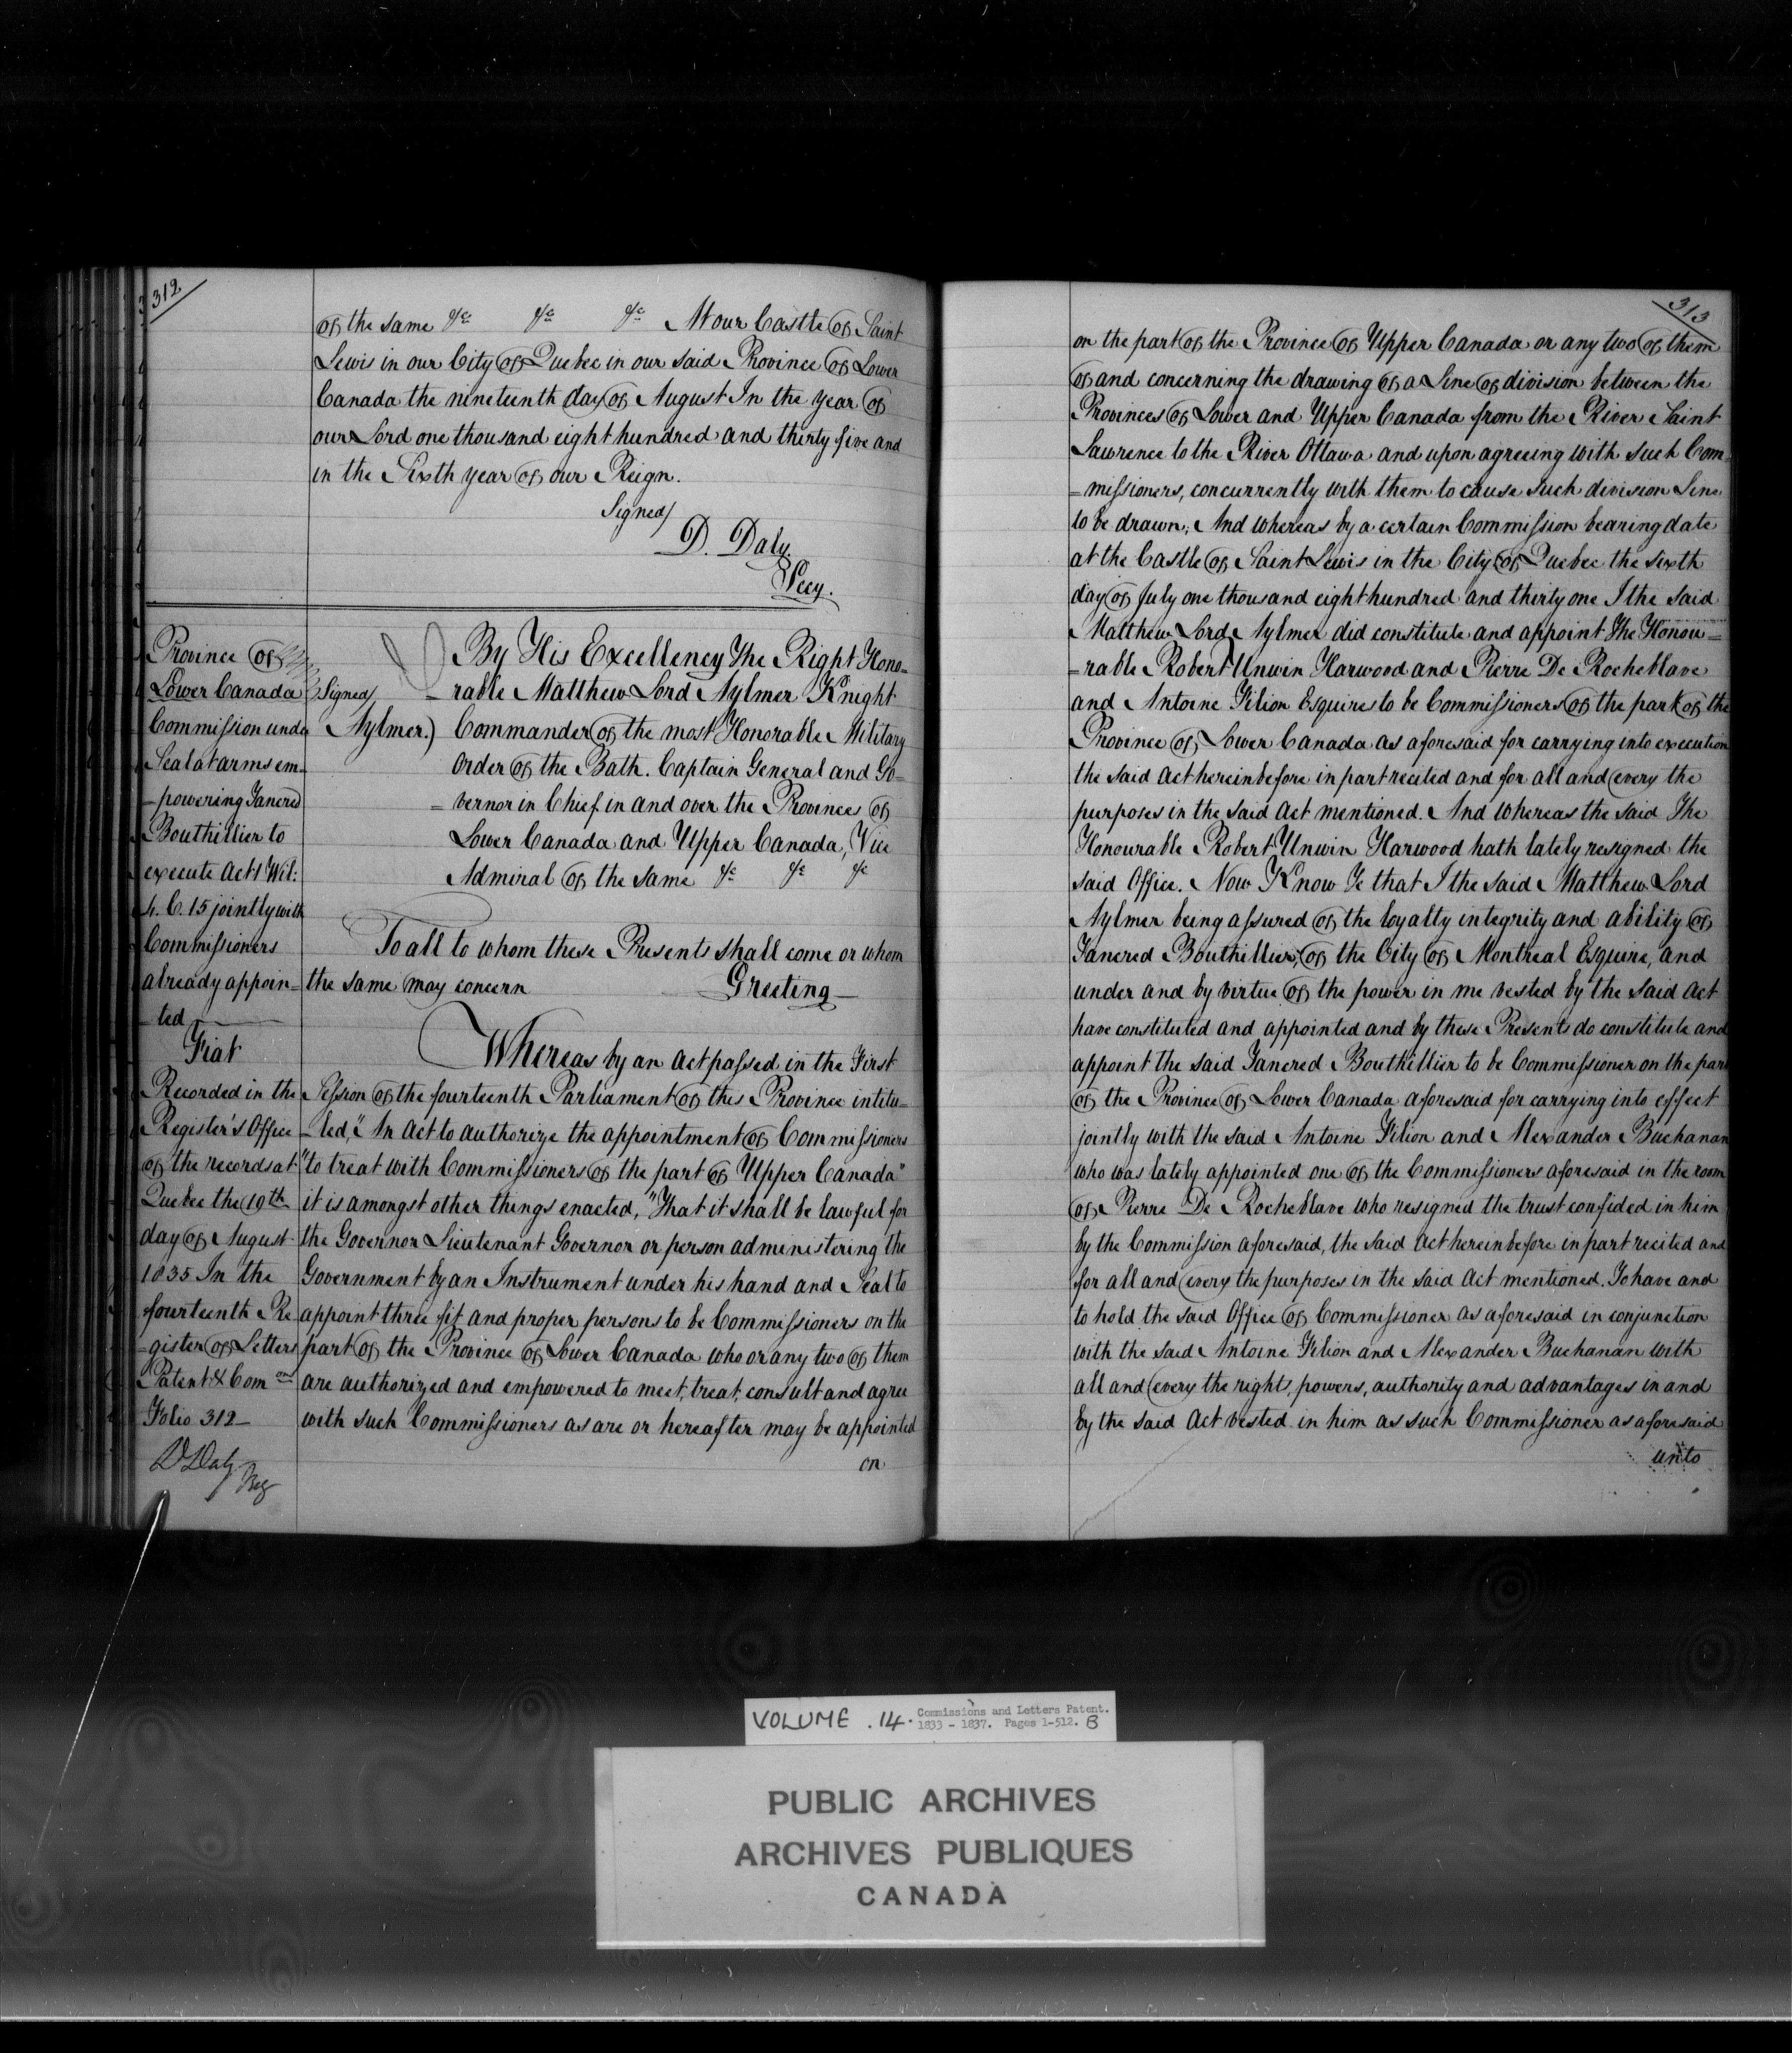 312
of the same &c &c &c At our Castle of Saint
Lewis in our City of Quebec in our said Province of Lower
Canada the nineteenth day of August In the year of
our Lord one thousand eight hundred and thirty five and
in the Sixth year of our Reign.
Signed/
D. Daly.
Secy.
Province of
Lower Canada
Commission under
Seal at arms em-
-powering Tancred
Bouthillier to
execute Act 1 Wil:
4. C. 15 jointly with
Commissioners
already appoin-
-ted
Fiat
Recorded in the
Register's Office
of the records at
Quebec the 19th
day of August
1835 In the
fourteenth Re
-gister of Letters
Patent & Com on
Folio 312
D Daly
Reg
Signed/
Aylmer.)
By His Excellency The Right Hono-
-rable Matthew Lord Aylmer Knight
Commander of the most Honorable Military
Order of the Bath. Captain General and Go-
-vernor in Chief in and over the Provinces of
Lower Canada and Upper Canada, Vice
Admiral of the same &c &c &c
To all to whom these Presents shall come or whom
the same may concern Greeting
Whereas by an Act passed in the First
Session of the fourteenth Parliament of this Province intitu-
-led, "An Act to authorize the appointment of Commissioners
"to treat with Commissioners of the part of Upper Canada"
it is amongst other things enacted, "That it shall be lawful for
the Governor Lieutenant Governor or person administering the
Government by an Instrument under his hand and Seal to
appoint three fit and proper persons to be Commissioners on the
part of the Province of Lower Canada who or any two of them
are authorized and empowered to meet, treat, consult and agree
with such Commissioners as are or hereafter may be appointed
on
313
on the part of the Province of Upper Canada or any two of them
of and concerning the drawing of a Line of division between the
Provinces of Lower and Upper Canada from the River Saint
Lawrence to the River Ottawa and upon agreeing with such Com-
-missioners, concurrently with them to cause such division Line
to be drawn; And whereas by a certain Commission bearing date
at the Castle of Saint Lewis in the City of Quebec the sixth
day of July one thousand eight hundred and thirty one I the said
Matthew Lord Aylmer did constitute and appoint The Honou-
-rable Robert Unwin Harwood and Pierre De Rocheblave
and Antoine Filion Esquires to be Commissioners of the part of the
Province of Lower Canada as aforesaid for carrying into execution
the said Act hereinbefore in part recited and for all and every the
purposes in the said Act mentioned. And whereas the said The
Honourable Robert Unwin Harwood hath lately resigned the
said Office. Now Know Ye that I the said Matthew Lord
Aylmer being assured of the loyalty integrity and ability of
Tancred Bouthillier, of the City of Montreal Esquire, and
under and by virtue of the power in me vested by the said Act
have constituted and appointed and by these Presents do constitute and
appoint the said Tancred Bouthillier to be Commissioner on the part
of the Province of Lower Canada aforesaid for carrying into effect
jointly with the said Antoine Filion and Alexander Buchanan
who was lately appointed one of the Commissioners aforesaid in the room
of Pierre De Rocheblave who resigned the trust confided in him
by the Commission aforesaid, the said Act hereinbefore in part recited and
for all and every the purposes in the said Act mentioned. To have and
to hold the said Office of Commissioner as aforesaid in conjunction
with the said Antoine Filion and Alexander Buchanan with
all and every the rights, powers, authority and advantages in and
by the said Act vested in him as such Commissioner as aforesaid
unto
VOLUME . 14. Commissions and Letters Patent.
1833 - 1837. Pages 1-512. B
PUBLIC ARCHIVES
ARCHIVES PUBLIQUES
CANADA